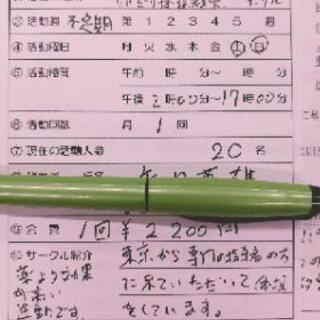 ③活動週 不定期 第 1 2 3 4 5 週
④活動曜日 月 火 水 木 金 土 日
⑤活動時間 午前 時 分～ 時 分
午後 2時00分～17時00分
⑥活動回数 月 1 回
⑦現在の活動人員 20名
⑨会費 1回￥2200円
⑩サークル紹介 東京から専門の指導者の方
薬より効果 に来ていただいて
が高い をしています。
運動です。